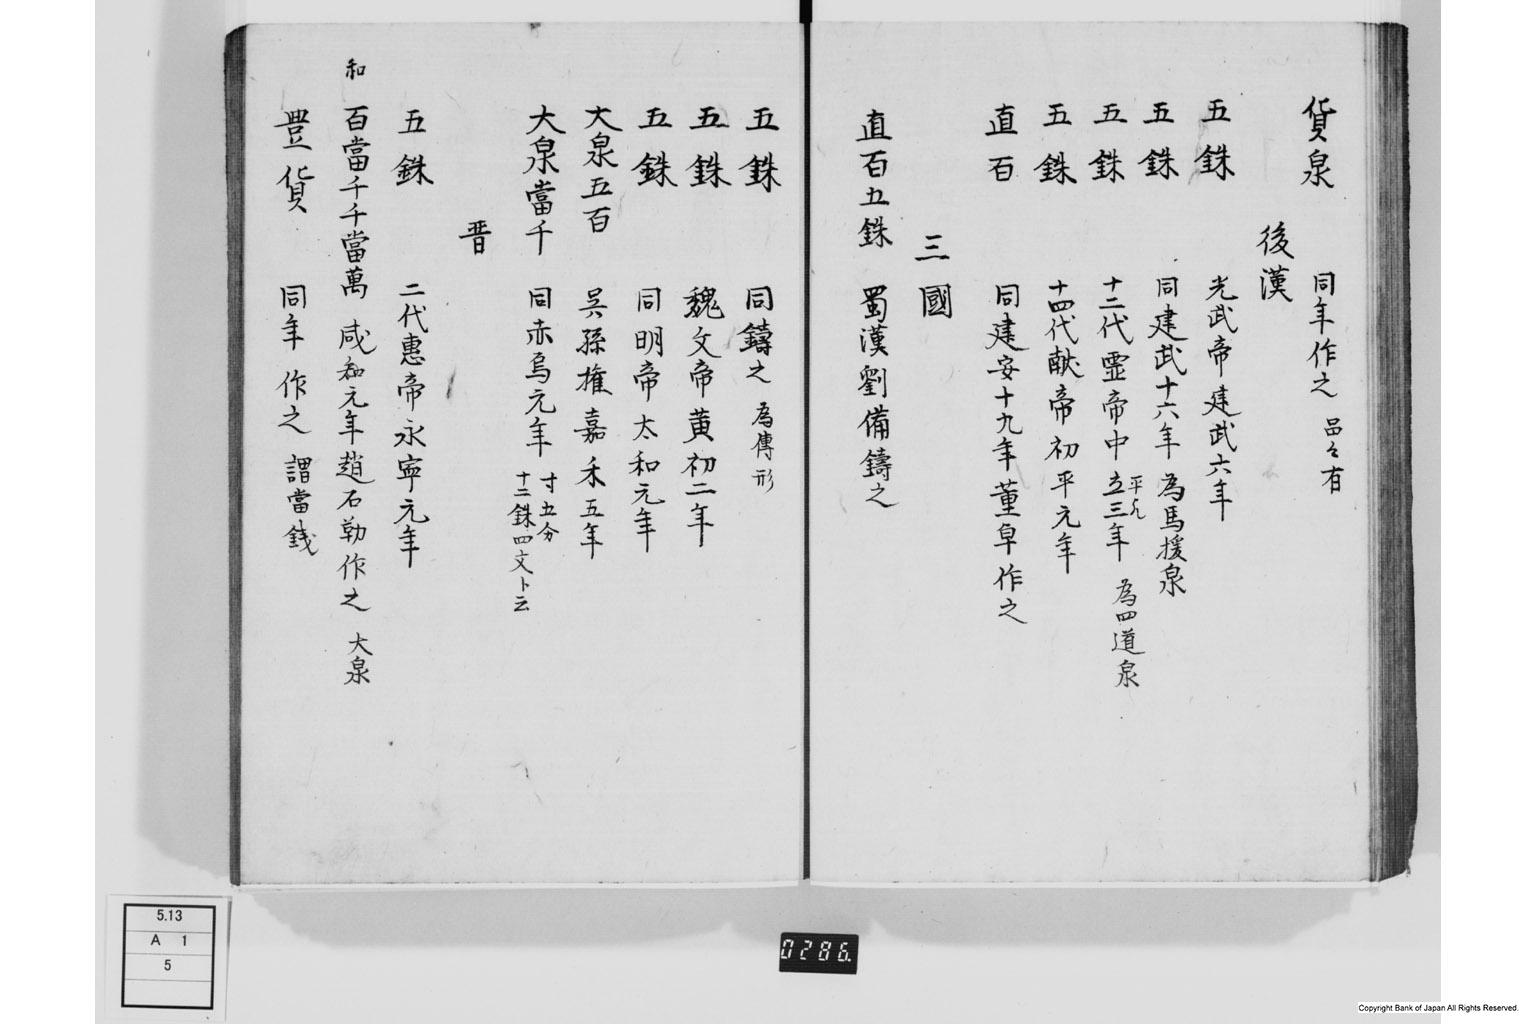 貨泉　同年作之　品々有
後漢
五銖　光武帝建武六年
五銖　同建武十六年　為馬援泉
五銖　十二代霊帝中平五三年　為四道泉
五銖　十四代献帝初平元年
直百　同建安十九年董卓作之
三國
直百五銖　蜀漢劉備鑄之
五銖　同鑄之　為傳形
五銖　魏文帝黄初二年
五銖　同明帝太和元年
大泉五百　呉孫権嘉禾五年
大泉當千　同赤烏元年　寸五分
十二銖四文ト云
晋
五銖　二代惠帝永寧元年
和　百當千千當萬　咸和元年趙石勒作之　大泉
豊貨　同年作之　謂當錢
5.13
A 1
5
0286.
Copyright Bank of Japan All Rights Reserved.